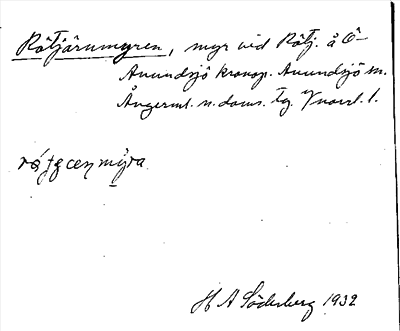 Råtjärnmyren, myr vid Råtj. å Ö-
Anundsjö kronop. Anundsjö sn.
Ångerml. n. doms. tg. Vnorrl. l.
mýra
H A Söderberg 1932